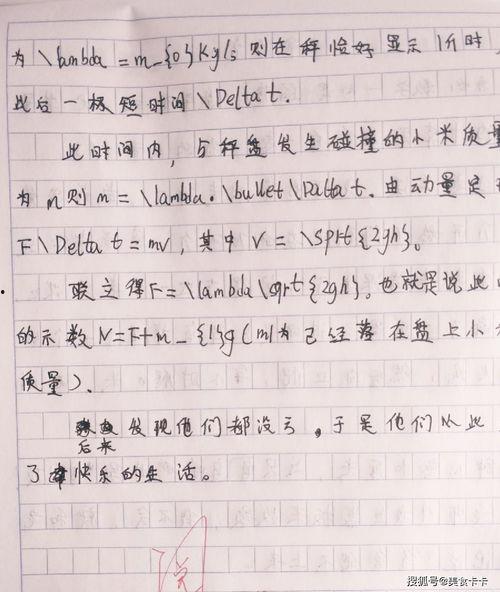 为 \lambda = m_{0}Kg/s 则在秤恰好显示1斤时
此后一极短时间\Delta t.
此时间内,与秤盘发生碰撞的小米质量
为m则m=\lambda.\bullet\Daltat.由动量定
F\Delta t=mv,其中v=\sprt{2gh}。
联立得F=\lambda\sqrt{2gh}。也就是说此
的示数N=F+m_{1}g(m1为已经落在盘上小
质量).
发现他们都没亏,于是他们从此
后来
了快乐的生活。
阅
搜狐号@美食卡卡